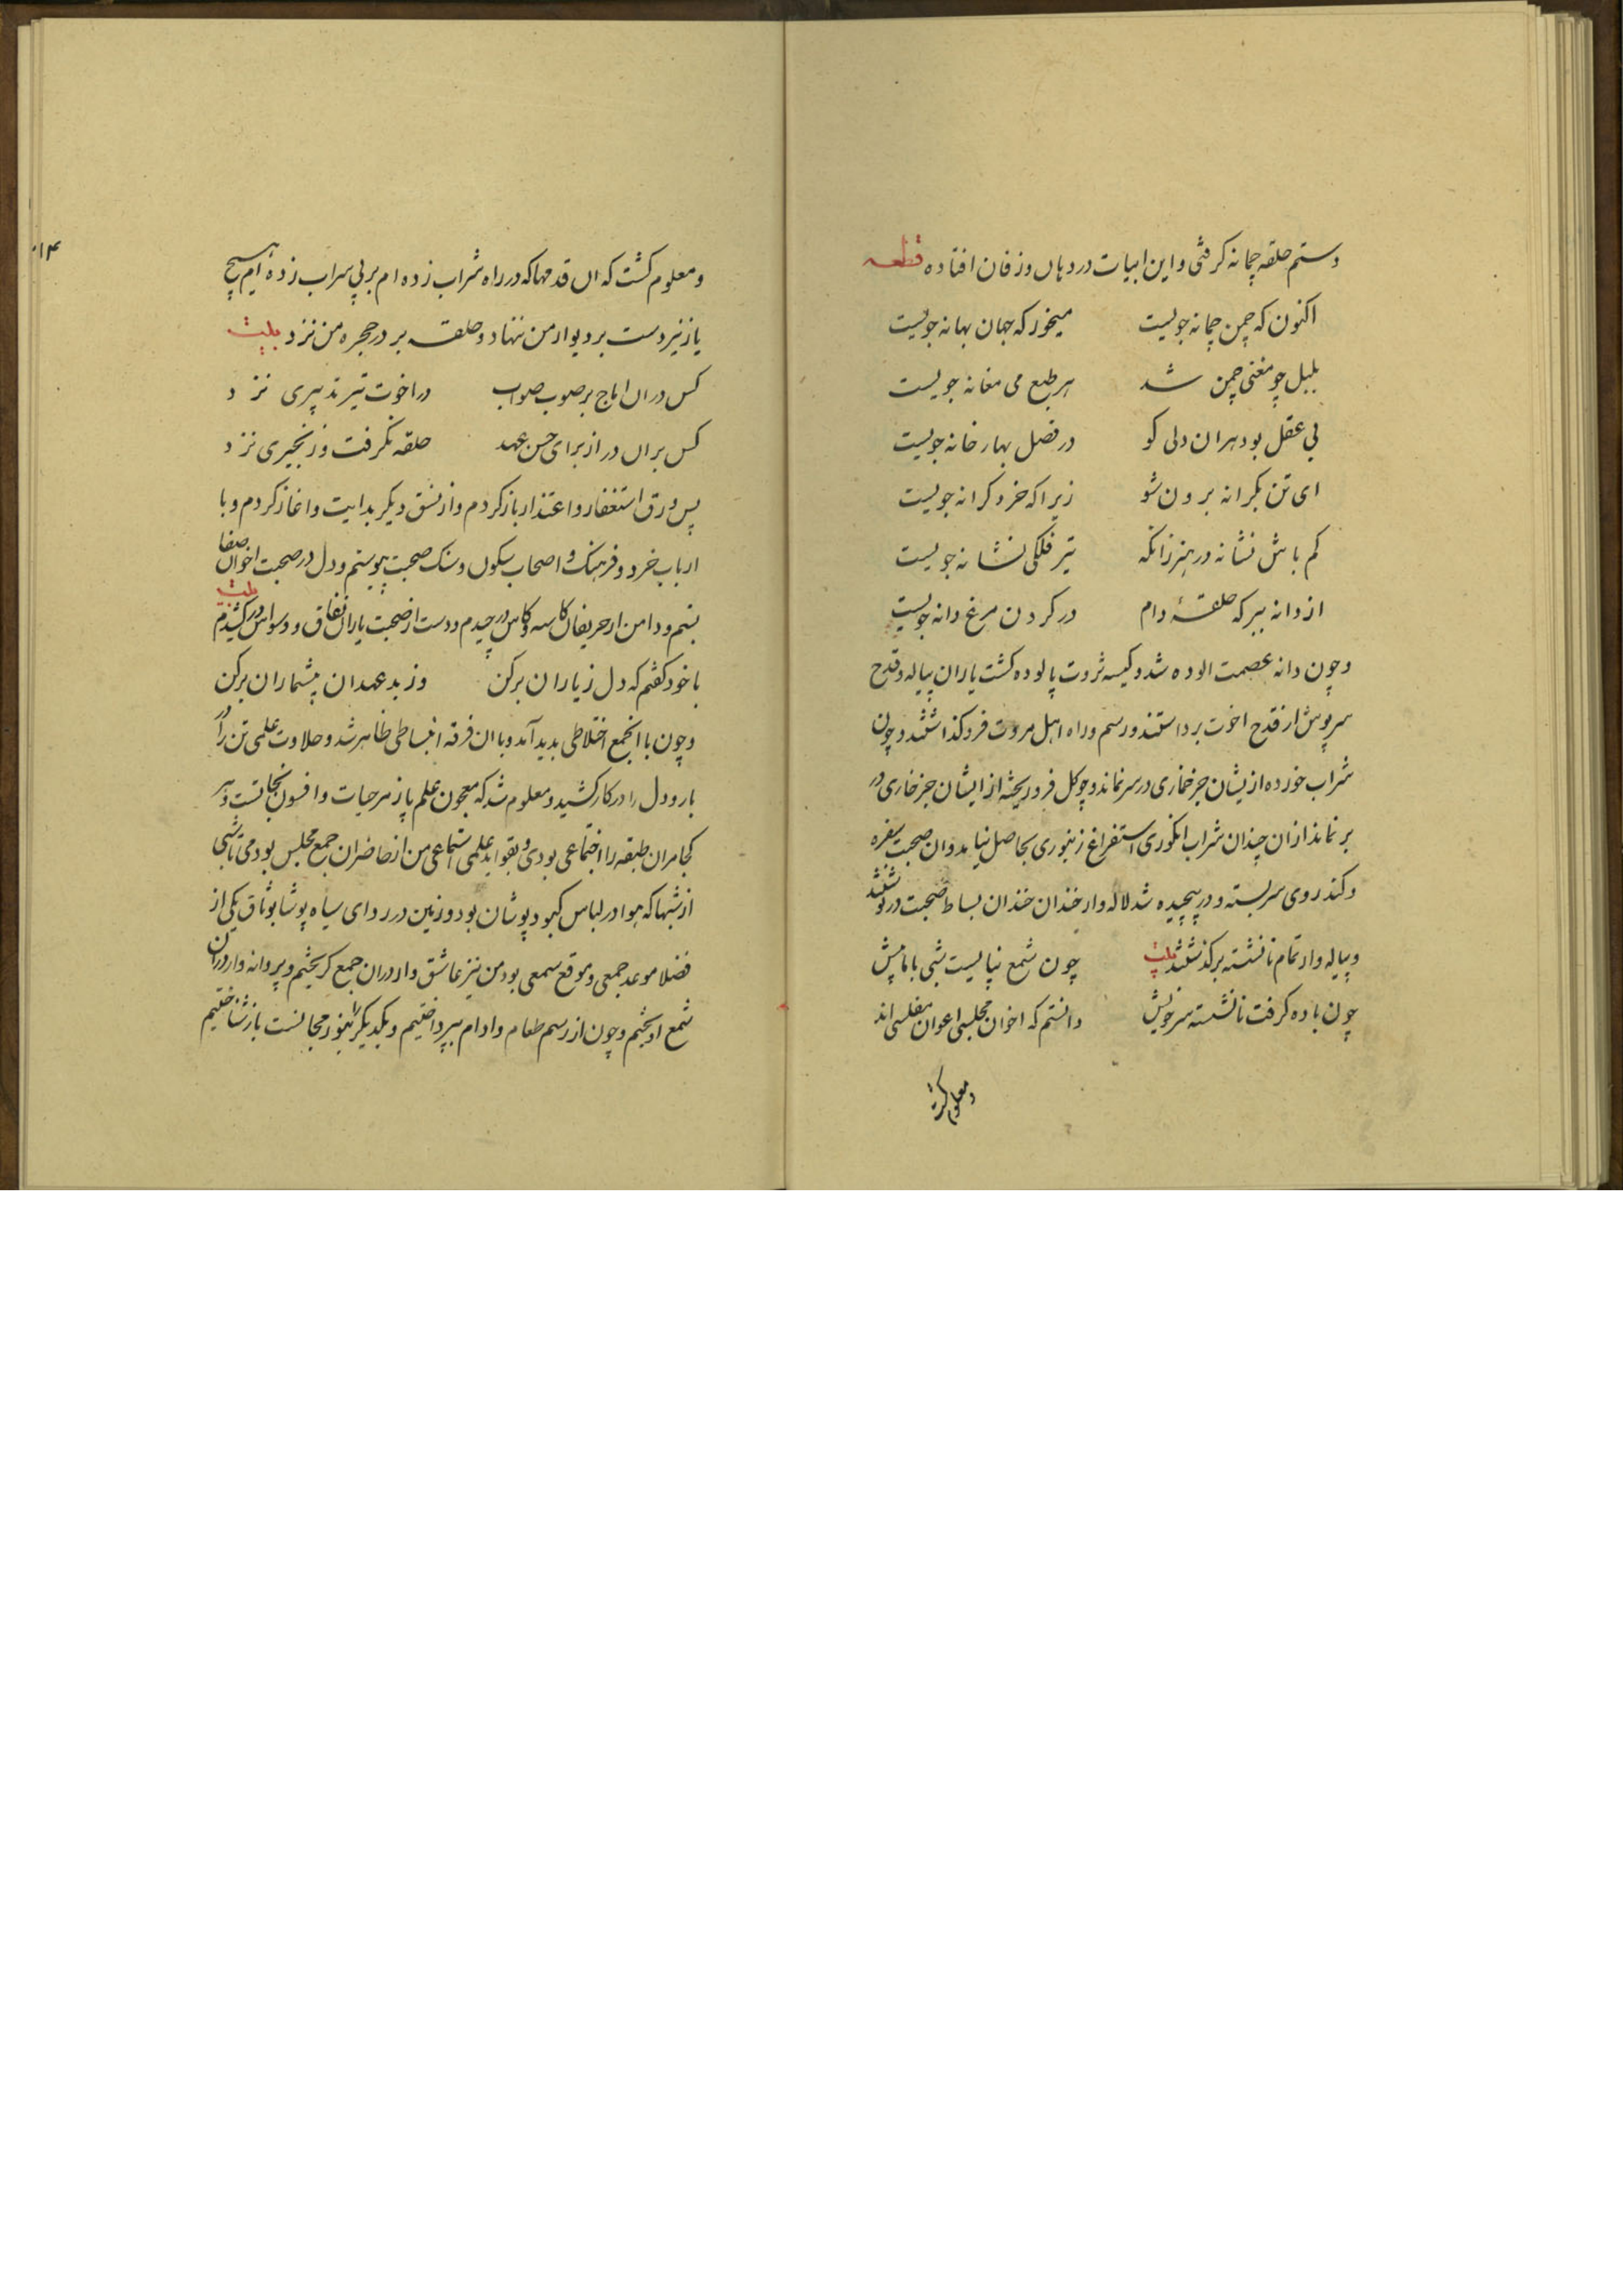 دستم حلقه چمانه کرفتی و این ابیات در دهان و زفان افتاده قطعه
اکنون که چمن چمانه جویست میخور که جهان بهانه جویست
بلبل چو مغنی چمن شد هر طبع می مغانه جویست
بی عقل بود هران دلی کو در فصل بهار خانه جویست
ای تن بکرانه برون شو زیرا که خرد کرانه جویست
کم باش نشانه در هنر زانکه تیر فلکی نشانه جویست
از دانه ببر که حلقهٔ دام در کردن مرغ دانه جویست
و چون دانه عصمت الوده شد و کیسه ثروت پالوده کشت یاران پیاله و قدح
سرپوش از قدح اخوت برداشتند و رسم و راه اهل مروت فروکذاشتند و چون
شراب خورده از یشان جز خماری در سر نماند و چو کل فرو ریخته از ایشان جز خاری در
بر نماند از ان چندان شراب انکوری استفراغ زنبوری بحاصل نیامد و ان صحبت سفره
و کندروی سربسته و در پیچیده شد لاله وار خندان خندان بساط صحبت در نوشتند
و پیاله وار تمام نانشسته برکذشتند بیت چون شمع نپایست شبی با ما پیش
چون باده کرفت نانشسته سر خویش دانستم که اخوان مجلسی اعوان مفلسی اند
و معلوم کشت
و معلوم کشت که ان قدمها که در راه شراب زده ام بر پی سراب زده ایم هیچ
یار نیز دست بر دیوار من ننهاد و حلقه بر در حجره من نزد بیت
کس در ان اماج بر صوب صواب در اخوت تیر تدبیری نزد
کس بران در از برای حسن عهد حلقه نکرفت و زنجیری نزد
پس ورق استغفار و اعتذار باز کردم و از نسق دیکر بدایت و اغاز کردم و با
ارباب خرد و فرهنک و اصحاب سکون و سنک صحبت پیوستم و دل در صحبت اخوان صفا
بستم و دامن از حریفان کاسه و کاس در چیدم و دست از صحبت یاران نفاق و وسواس در کشیدم بیت
با خود کفتم که دل ز یاران برکن وز بد عهدان بیشماران برکن
و چون با انجمع اختلاطی بدید آمد و با ان فرقه انبساطی ظاهر شد و حلاوت علمی تن را در
بار و دل را در کار کشید و معلوم شد که معجون علم پازهر حیات و افسون نجاتست و هر
کجا مران طبقه را اجتماعی بودی و بقواید علمی استماعی من از حاضران جمع مجلس بودمی تا شبی
از شبها که هوا در لباس کبود پوشان بود و زمین در ردای سیاه پوشا بوثاق یکی از
فضلا موعد جمعی و موقع سمعی بود من نیز عاشق وار در ان جمع کریختم و پروانه وار در ان
شمع اویختم و چون از رسم طعام و ادام بپرداختیم و یکدیکر را بنور مجالست باز شناختیم
۰۱۴